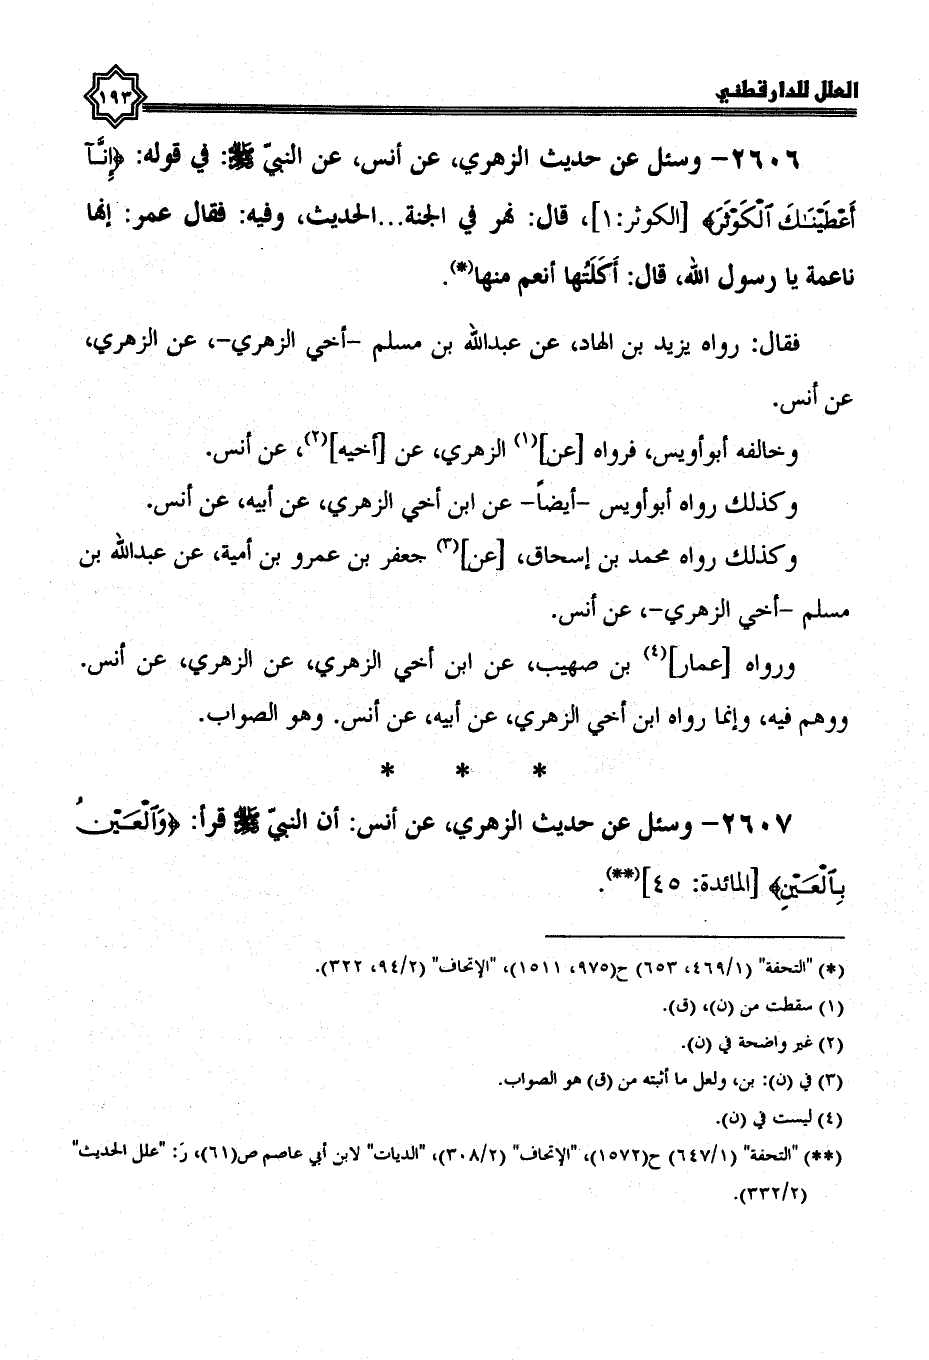 العلل للدارقطني
١٩٣
٢٦٠٦– وسئل عن حديث الزهري، عن أنس، عن النبيّ ﷺ: في قوله: ﴿إِنَّآ
أَعْطَيْنَـٰكَ ٱلْكَوْثَرَ﴾ [الكوثر:١]، قال: نهر في الجنة...الحديث، وفيه: فقال عمر: إنها
ناعمة يا رسول الله، قال: أَكَلَتُها أنعم منها(*).
فقال: رواه يزيد بن الهاد، عن عبدالله بن مسلم –أخي الزهري–، عن الزهري،
عن أنس.
وخالفه أبوأويس، فرواه [عن](١) الزهري، عن [أخيه](٢)، عن أنس.
وكذلك رواه أبوأويس –أيضاً– عن ابن أخي الزهري، عن أبيه، عن أنس.
وكذلك رواه محمد بن إسحاق، [عن](٣) جعفر بن عمرو بن أمية، عن عبدالله بن
مسلم –أخي الزهري–، عن أنس.
ورواه [عمار](٤) بن صهيب، عن ابن أخي الزهري، عن الزهري، عن أنس.
ووهم فيه، وإنما رواه ابن أخي الزهري، عن أبيه، عن أنس. وهو الصواب.
* * *
٢٦٠٧– وسئل عن حديث الزهري، عن أنس: أن النبيّ ﷺ قرأ: ﴿وَٱلْعَيْنُ
بِٱلْعَيْنِ﴾ [المائدة: ٤٥](**).
(*) "التحفة" (٤٦٩/١، ٦٥٣) ح(٩٧٥، ١٥١١)، "الإتحاف" (٩٤/٢، ٣٢٢).
(١) سقطت من (ن)، (ق).
(٢) غير واضحة في (ن).
(٣) في (ن): بن، ولعل ما أثبته من (ق) هو الصواب.
(٤) ليست في (ن).
(**) "التحفة" (٦٤٧/١) ح(١٥٧٢)، "الإتحاف" (٣٠٨/٢)، "الديات" لابن أبي عاصم ص(٦١)، رَ: "علل الحديث"
(٣٣٢/٢).